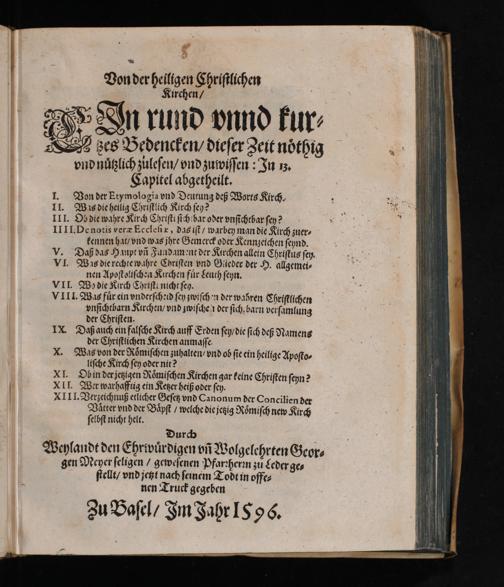 8
Von der heiligen Christlichen
Kirchen/
EIn rund vnnd kur-
tzes Bedencken/ dieser Zeit nöthig
vnd nützlich zulesen/ vnd zuwissen: In 13.
Capitel abgetheilt.
I. Von der Etymologia vnd Deutung deß Worts Kirch.
II. Was die heilig Christlich Kirch sey?
III. Ob die wahre Kirch Christi sichtbar oder vnsichtbar sey?
IIII. De notis veræ Ecclesiæ, das ist/ warbey man die Kirch zuer-
kennen hat/ vnd was jhre Gemerck oder Kennzeichen seynd.
V. Daß das Haupt vñ Fundament der Kirchen allein Christus sey.
VI. Was die rechte wahre Christen vnd Glieder der H. allgemei-
nen Apostolischen Kirchen für Leuth seyn.
VII. Wo die Kirch Christi nicht sey.
VIII. Was für ein vnderscheid sey zwischen der wahren Christlichen
vnsichtbarn Kirchen/ vnd zwischen der sichtbarn versamlung
der Christen.
IX. Daß auch ein falsche Kirch auff Erden sey/ die sich deß Namens
der Christlichen Kirchen anmasse.
X. Was von der Römischen zuhalten/ vnd ob sie ein heilige Aposto-
lische Kirch sey oder nit?
XI. Ob in der jetzigen Römischen Kirchen gar keine Christen seyn?
XII. Wer warhafftig ein Ketzer heiß oder sey.
XIII. Verzeichnuß etlicher Gesetz vnd Canonum der Concilien der
Vätter vnd der Bäpst/ welche die jetzig Römisch new Kirch
selbst nicht helt.
Durch
Weylandt den Ehrwürdigen vñ Wolgelehrten Geor-
gen Meyer seligen/ gewesenen Pfarrherrn zu Leder ge-
stellt/ vnd jetzt nach seinem Todt in offe-
nen Truck gegeben
Zu Basel/ Im Jahr 1596.